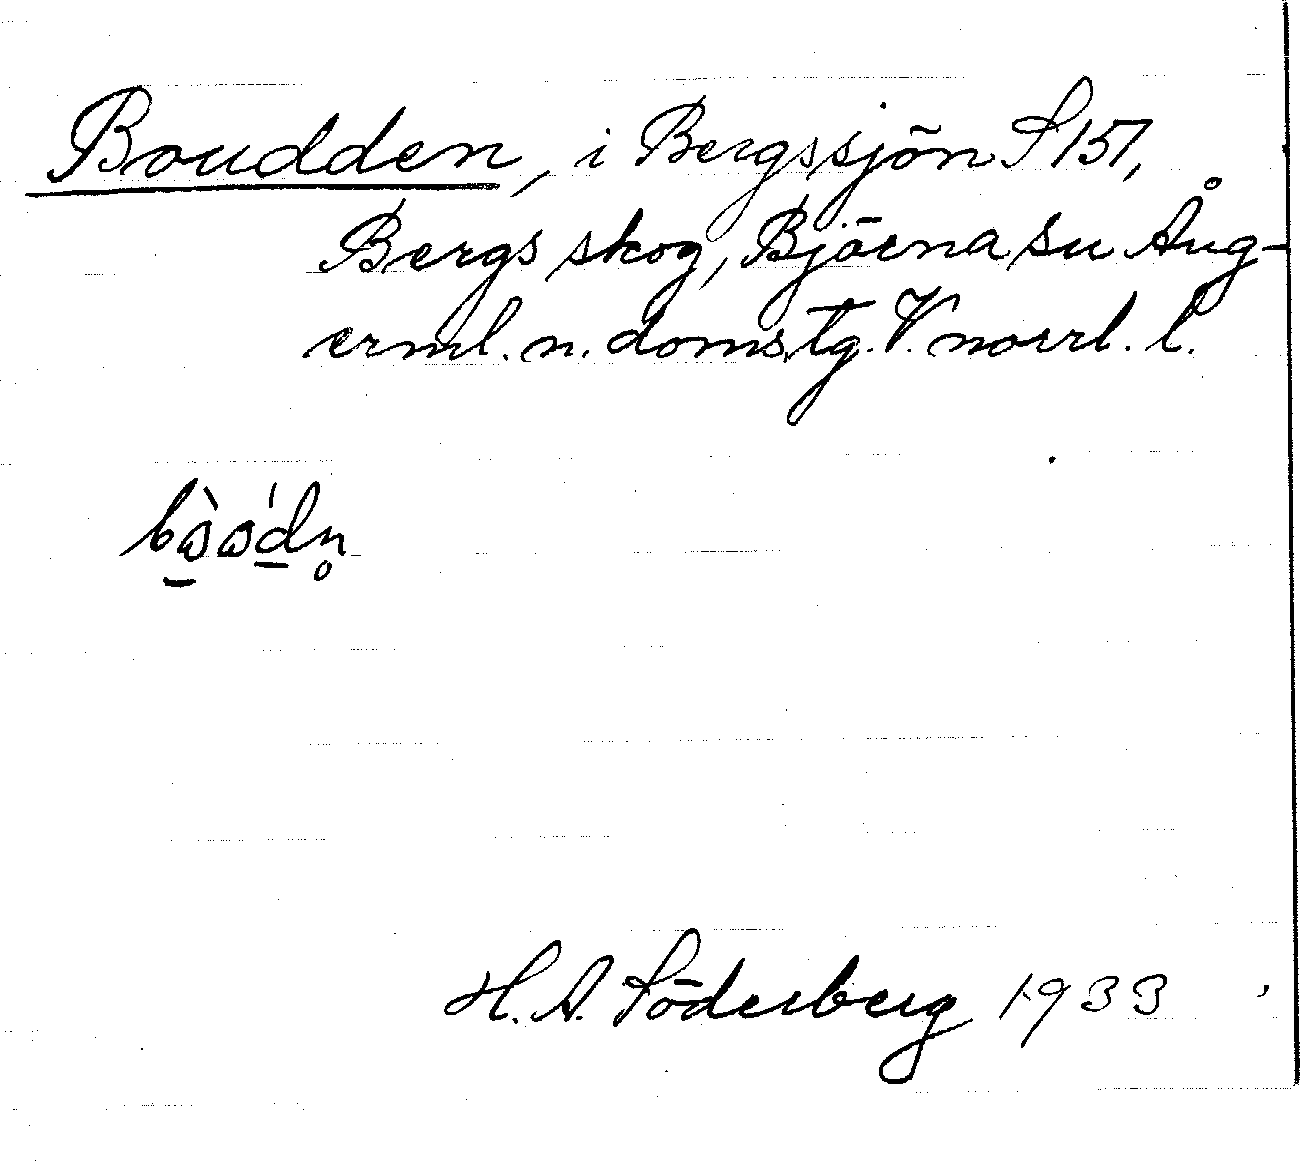 Boudden, i Bergssjön S 151,
Bergs skog, Björna su Ång-
erml. n. doms.tg. V. norrl. l.
H. A. Söderberg 1933